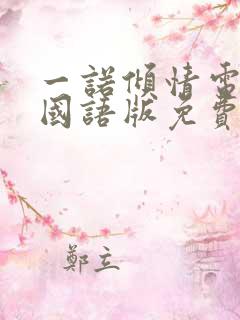 一諾傾情電
國語版免費
鄭立